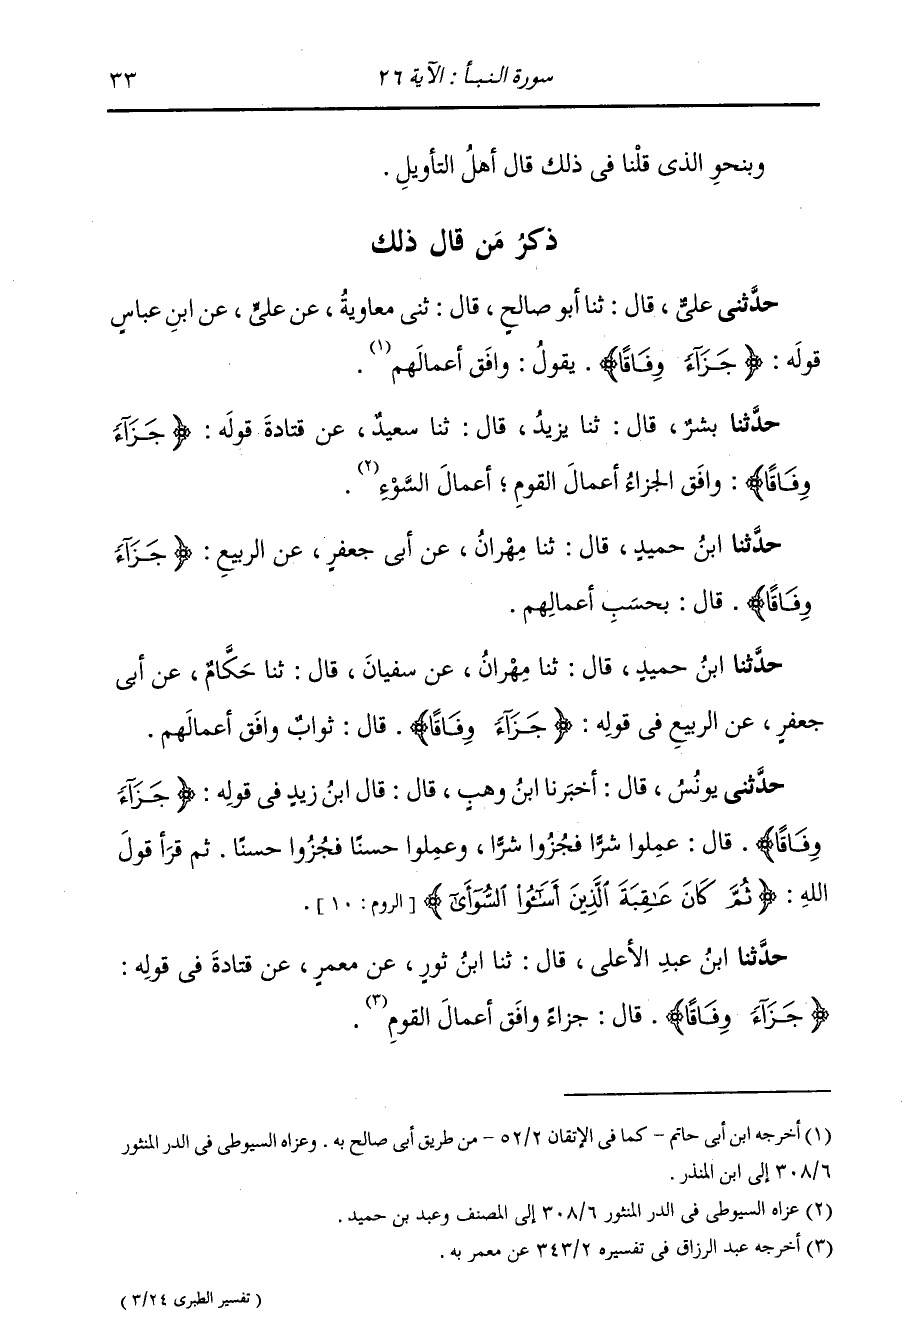 سورة النبأ : الآية ٢٦
٣٣
وبنحوِ الذى قلْنا فى ذلك قال أهلُ التأويلِ .
ذكرُ مَن قال ذلك
حدَّثنى علىٌّ ، قال : ثنا أبو صالحٍ ، قال : ثنى معاويةُ ، عن علىٍّ ، عن ابنِ عباسٍ
قولَه : ﴿ جَزَآءً وِفَاقًا﴾ . يقولُ : وافَق أعمالَهم(١) .
حدَّثنا بشرٌ ، قال : ثنا يزيدُ ، قال : ثنا سعيدٌ ، عن قتادةَ قولَه : ﴿ جَزَآءً
وِفَاقًا﴾ : وافَق الجزاءُ أعمالَ القومِ ؛ أعمالَ السَّوْءِ(٢) .
حدَّثنا ابنُ حميدٍ ، قال : ثنا مِهْرانُ ، عن أبى جعفرٍ ، عن الربيعِ : ﴿ جَزَآءً
وِفَاقًا﴾ . قال : بحسَبِ أعمالِهم .
حدَّثنا ابنُ حميدٍ ، قال : ثنا مِهْرانُ ، عن سفيانَ ، قال : ثنا حَكَّامٌ ، عن أبى
جعفرٍ ، عن الربيعِ فى قولِه : ﴿ جَزَآءً وِفَاقًا﴾ . قال : ثوابٌ وافَق أعمالَهم .
حدَّثنى يونُسُ ، قال : أخبَرنا ابنُ وهبٍ ، قال : قال ابنُ زيدٍ فى قولِه : ﴿ جَزَآءً
وِفَاقًا﴾ . قال : عمِلوا شرًّا فجُزُوا شرًّا ، وعمِلوا حسنًا فجُزُوا حسنًا . ثم قرَأ قولَ
اللهِ : ﴿ ثُمَّ كَانَ عَٰقِبَةَ ٱلَّذِينَ أَسَٰٓـُٔوا۟ ٱلسُّوٓأَىٰٓ ﴾ [ الروم : ١٠ ] .
حدَّثنا ابنُ عبدِ الأعلى ، قال : ثنا ابنُ ثورٍ ، عن معمرٍ ، عن قتادةَ فى قولِه :
﴿ جَزَآءً وِفَاقًا﴾ . قال : جزاءً وافَق أعمالَ القومِ(٣) .
(١) أخرجه ابن أبى حاتم - كما فى الإتقان ٥٢/٢ - من طريق أبى صالح به . وعزاه السيوطى فى الدر المنثور
٣٠٨/٦ إلى ابن المنذر .
(٢) عزاه السيوطى فى الدر المنثور ٣٠٨/٦ إلى المصنف وعبد بن حميد .
(٣) أخرجه عبد الرزاق فى تفسيره ٣٤٣/٢ عن معمر به .
( تفسير الطبرى ٣/٢٤ )